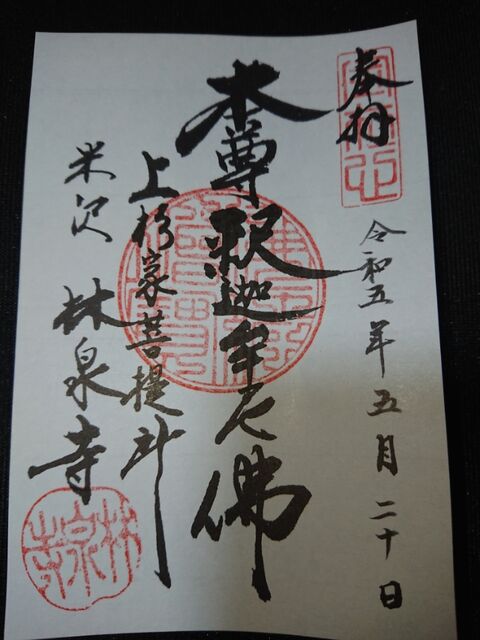 奉拝
令和五年五月二十日
本尊釈迦牟尼佛
上杉家菩提所
米沢 林泉寺
林泉寺